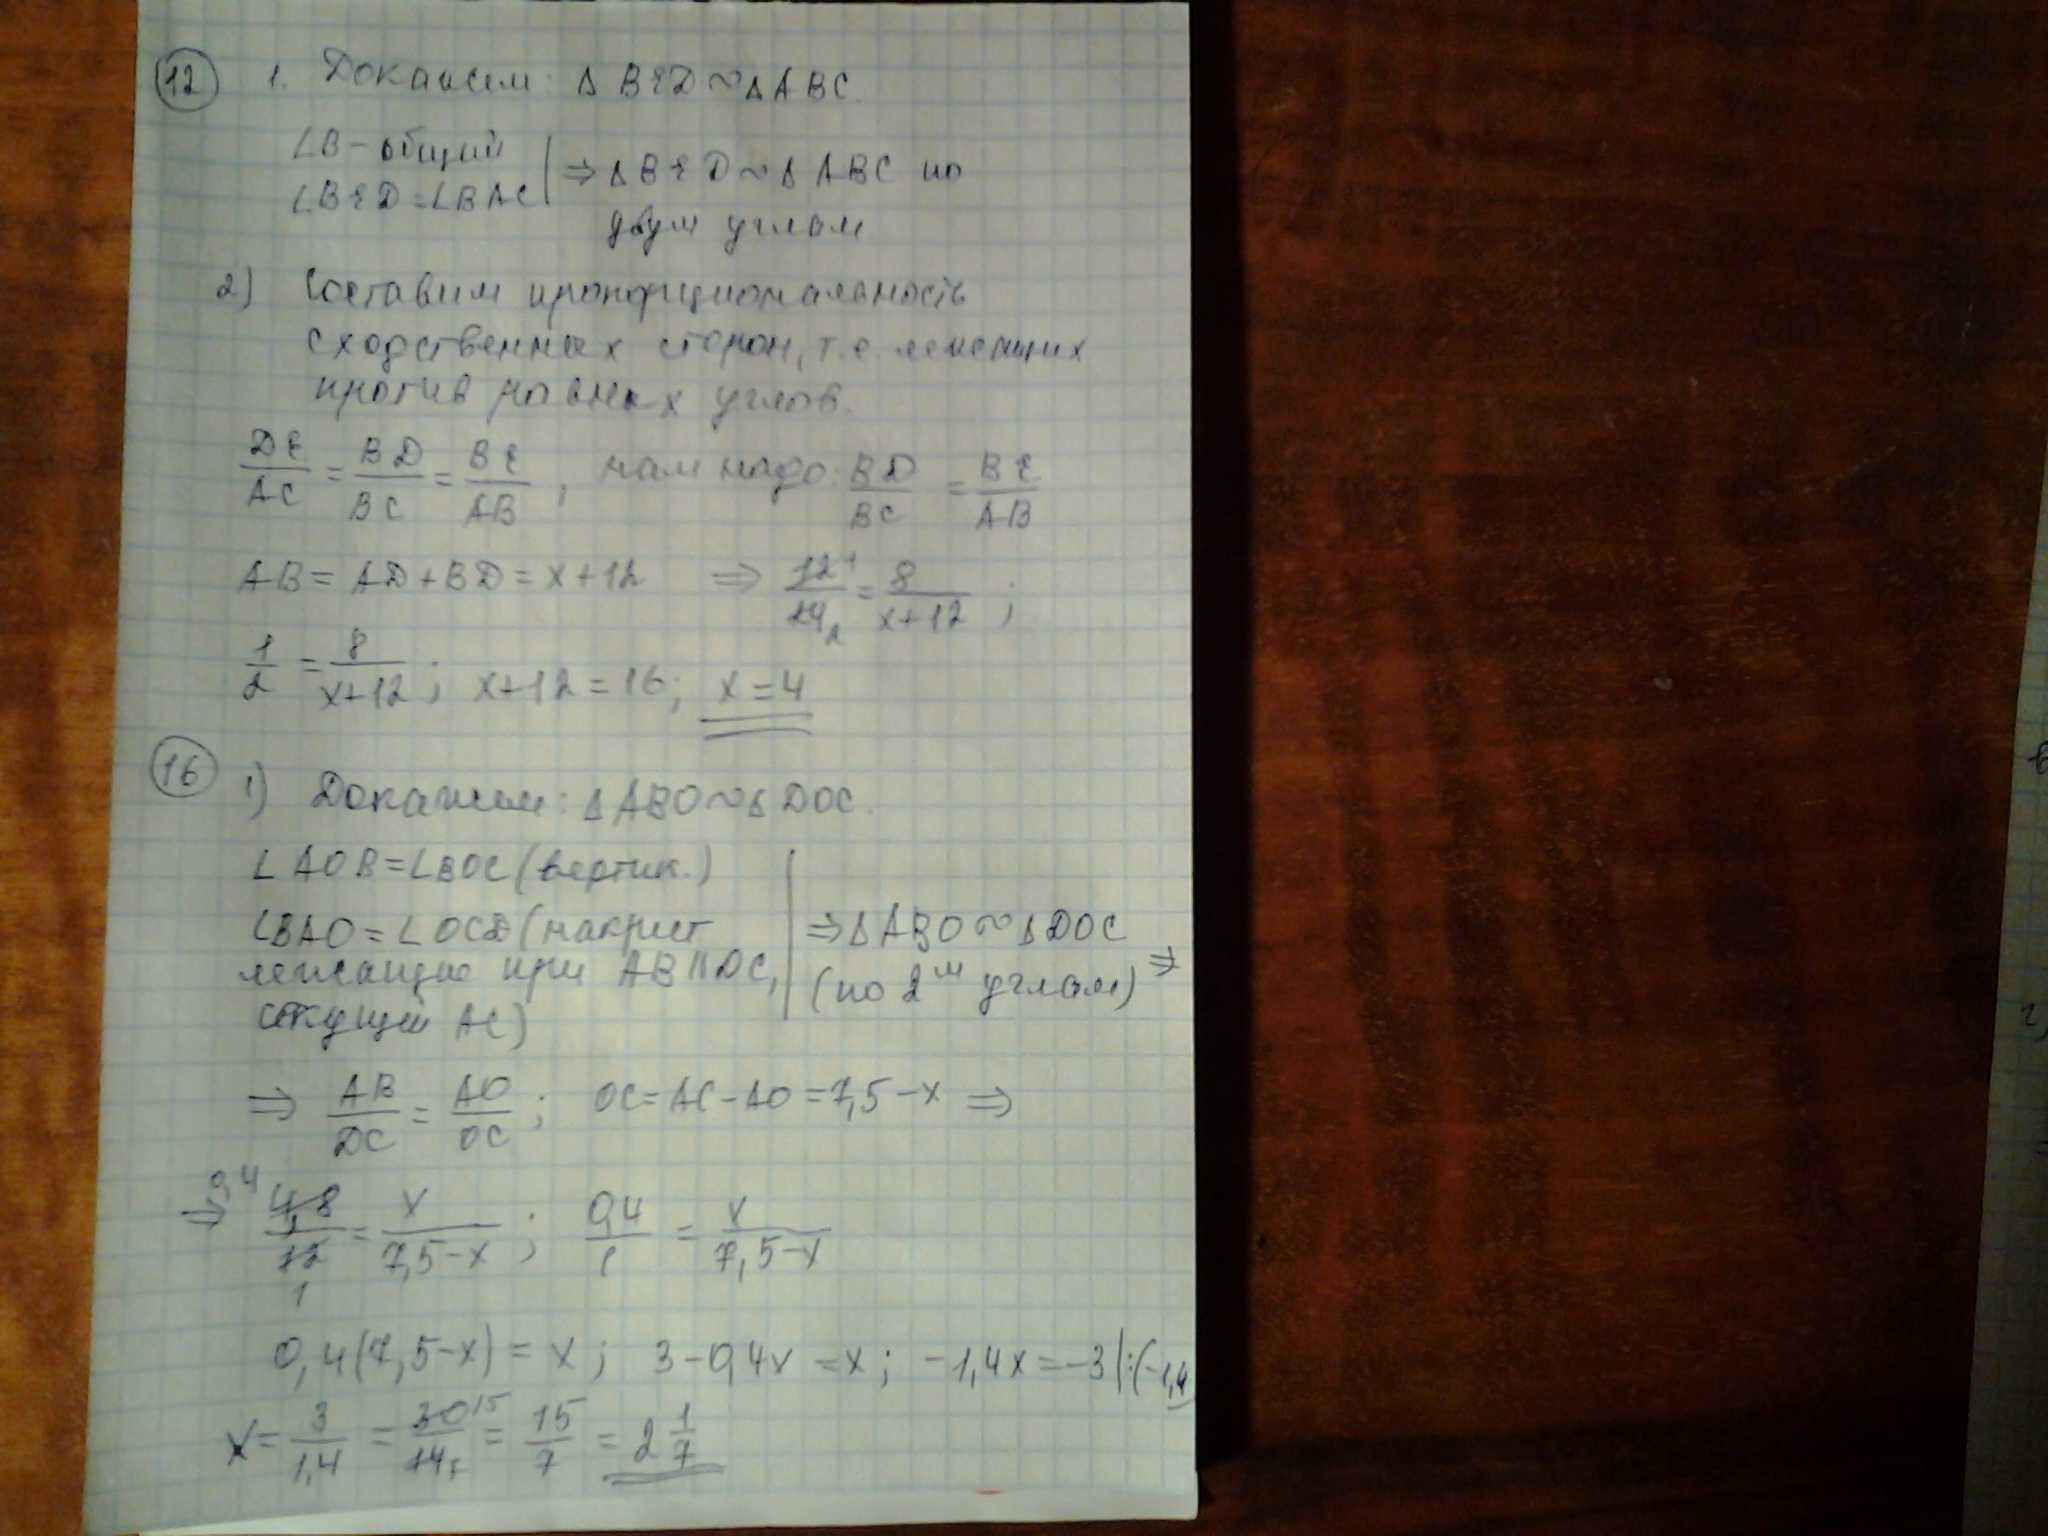 12 1. Докажем: Δ BED ∾ Δ ABC.
∠B - общий
∠BED = ∠BAC | ⇒ Δ BED ∾ Δ ABC по
двум углам
2) Составим пропорциональность
сходственных сторон, т.е. лежащих
против равных углов.
DE/AC = BD/BC = BE/AB ; нам надо: BD/BC = BE/AB
AB = AD + BD = x + 12 ⇒ 12 1/24 2 = 8/x+12 ;
1/2 = 8/x+12 ; x+12 = 16; x = 4
16 1) Докажем: Δ ABO ∾ Δ DOC.
∠AOB = ∠BOC (вертик.)
∠BAO = ∠OCD (накрест
лежащие при AB || DC,
секущей AC)
⇒ Δ ABO ∾ Δ DOC
(по 2м углам) ⇒
⇒ AB/DC = AO/OC ; OC = AC - AO = 7,5 - x ⇒
⇒ 0,4 4,8/12 1 = x/7,5-x ; 0,4/1 = x/7,5-x
0,4(7,5-x) = x ; 3 - 0,4x = x ; -1,4x = -3 |:(-1,4)
x = 3/1,4 = 30 15/14 7 = 15/7 = 2 1/7